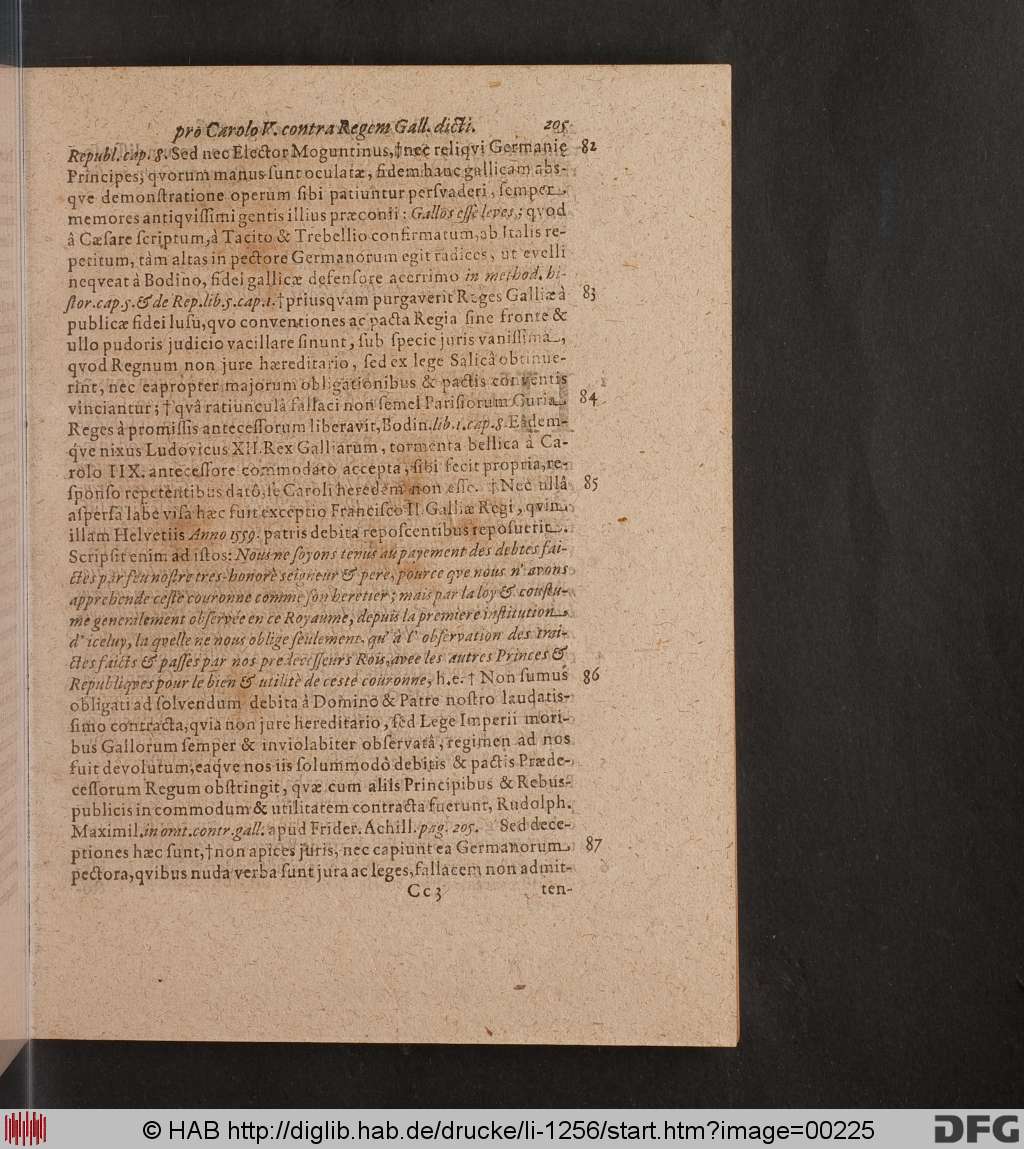 pro Carolo V. contra Regem Gall. dicti. 205
Republ. cap. 8. Sed nec Elector Moguntinus, † nec reliqvi Germanię 82
Principes, qvorum manus ſunt oculatæ, fidem hanc gallicam abs-
qve demonſtratione operum ſibi patiuntur perſvaderi, ſemper
memores antiqviſſimi gentis illius præconii: Gallos eſſe leves; qvod
â Cæſare ſcriptum, à Tacito & Trebellio confirmatum, ab Italis re-
petitum, tàm altas in pectore Germanorum egit radices, ut evelli
neqveat à Bodino, fidei gallicæ defenſore acerrimo in method. hi-
ſtor. cap. 5. & de Rep. lib. 5. cap. 1. † priusqvam purgaverit Reges Galliæ à 83
publicæ fidei luſu, qvo conventiones ac pacta Regia ſine fronte &
ullo pudoris judicio vacillare ſinunt, ſub ſpecie juris vaniſſima,
qvod Regnum non jure hæreditario, ſed ex lege Salicâ obtinue-
rint, nec eapropter majorum obligationibus & pactis conventis
vinciantur; † qvâ ratiunculâ fallaci non ſemel Pariſiorum Curia 84
Reges à promiſſis anteceſſorum liberavit, Bodin. lib. 1. cap. 8. Eâdem-
qve nixus Ludovicus XII. Rex Galliarum, tormenta bellica à Ca-
rolo IIX. anteceſſore commodato accepta, ſibi fecit propria, re-
ſponſo repetentibus datô, ſe Caroli heredem non eſſe. † Nec ullâ 85
aſperſa labe viſa hæc fuit exceptio Franciſco II. Galliæ Regi, qvin
illam Helvetiis Anno 1559. patris debita repoſcentibus repoſuerit.
Scripſit enim ad iſtos: Nous ne ſoyons tenus au payement des debtes fai-
ctes par feu noſtre tres-honorè seigneur & pere, pource qve nous n'avons
apprehende ceſte couronne comme ſon heretier; mais par la loy & couſtu-
me generilement obſervée en ce Royaume, depuis la premiere inſtitution
d'iceluy, la qvelle ne nous oblige ſeulement, qu'à l'obſervation des trai-
ctes faicts & paſſes par nos predeceſſeurs Rois, avec les autres Princes &
Republiqves pour le bien & utilitè de ceste couronne, h.e. † Non ſumus 86
obligati ad ſolvendum debita à Domino & Patre noſtro laudatis-
ſimo contracta, qvia non jure hereditario, ſed Lege Imperii mori-
bus Gallorum ſemper & inviolabiter obſervatâ, regimen ad nos
fuit devolutum, eaqve nos iis ſolummodô debitis & pactis Præde-
ceſſorum Regum obſtringit, qvæ cum aliis Principibus & Rebus-
publicis in commodum & utilitatem contracta fuerunt, Rudolph.
Maximil. in orat. contr. gall. apud Frider. Achill. pag. 205. Sed dece-
ptiones hæc ſunt, † non apices juris, nec capiunt ea Germanorum 87
pectora, qvibus nuda verba ſunt jura ac leges, fallacem non admit-
Cc 3 ten-
© HAB http://diglib.hab.de/drucke/li-1256/start.htm?image=00225
DFG